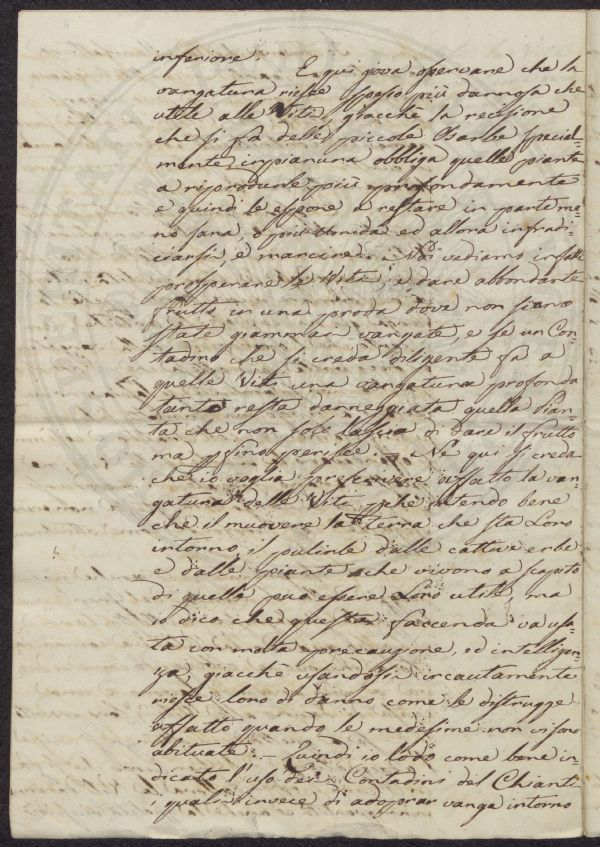 inferiore.
E qui giova osservare che la
vangatura riesce spesso più dannosa che
utile alle Viti, giacchè la recisione
che si fa delle piccole Barbe special-
mente in pianura obbliga quelle piante
a riprodurle più profondamente
e quindi le espone a restare in parte me-
no sana, e più umida ed allora infradi-
ciarsi, e mancare. Noi vediamo infatti
prosperare le Viti, e dare abbondante
frutto in una proda dove non siano
state giammai vangate, e se un Con-
tadino che si creda diligente fa a
quelle Viti una vangatura profonda
tanto resta danneggiata quella Pian-
ta che non solo lascia di dare il frutto
ma persino perisce. - Nè qui si creda
che io voglia proscrivere affatto la van-
gatura delle Viti, pchè intendo bene
che il muovere la terra che sta Loro
intorno, il pulirle dalle cattive erbe
e dalle piante che vivono a scapito
di quelle può essere Loro utile, ma
io dico che questa faccenda va usa-
ta con molta precauzione, ed intelligen-
za, giacchè usandosi incautamente
riesce loro di danno come le distrugge
affatto quando le medesime non vi sono
abituate. - Quindi io lodo come bene in-
dicato l'uso dei Contadini del Chianti
i quali invece di adoprar vanga intorno